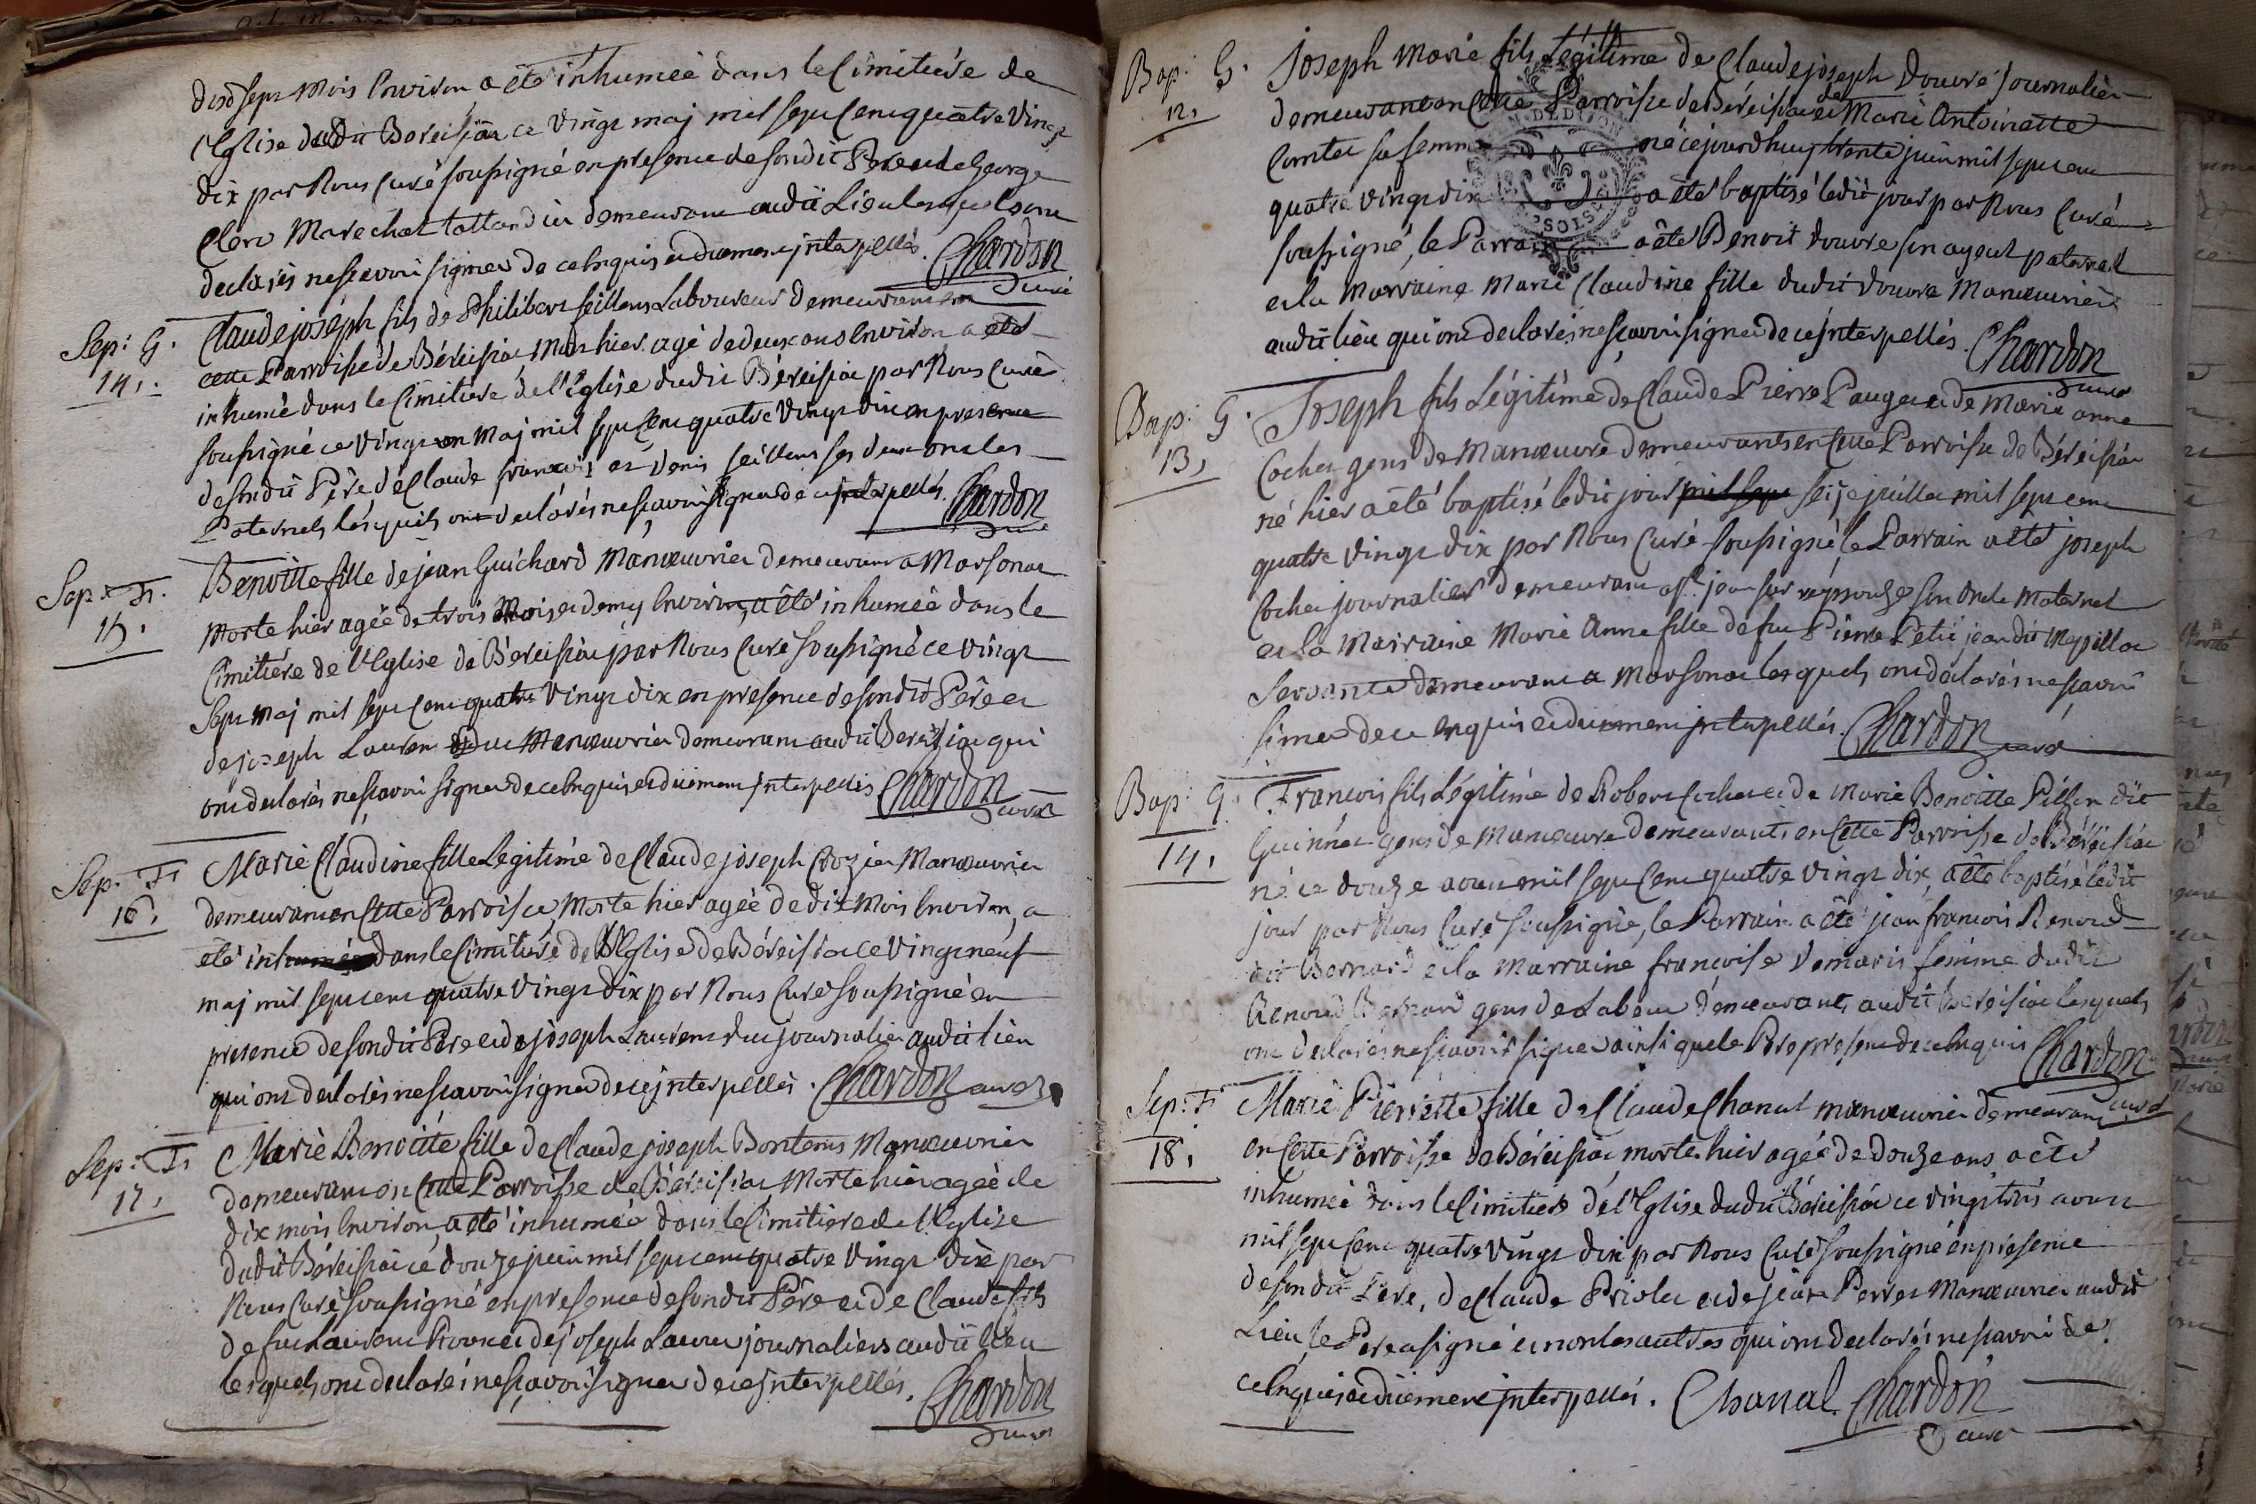 dixsept mois Environ a été inhumeé dans le Cimitiére de
l'Eglise dudit Bereisiau ce vingt maj mil sept Cent quatre vingt
dix par Nous Curé soussigné en presence de sondit Pere et de George
Clerc Marechal tallandier demeurant audit Lieu lesquels ont
declarés ne sçavoir signer de ce Enquis et duement jnterpellés. Chardon
Curé
Sep: G. Claude joséph fils de Philibert feillens Laboureur demeurant en
14,. cette Parroisse de Béreisiau Mort hier agé de deux ans Environ a été
inhumé dans le Cimitiere de l'Eglise dudit Béreisiau par Nous Curé
soussigné ce vingt un Maj mil sept Cent quatre vingt dix en presence
de sondit Pére de Claude francois et Denis feillens ses deux oncles
Paternels lesquels ont declarés ne sçavoir signer de ce jnterpellés. Chardon
Curé
Sep: F. Benoitte fille de jean Guichard Manœuvrier demeurant a Marsonas
15, morte hier agée de trois Mois et demy Environ, a été inhumeé dans le
Cimitiére de l'Eglise de Béreisiau par Nous Curé soussigné ce vingt
Sept Maj mil sept Cent quatre vingt dix en presence de sondit Pére et
de joseph Laurent Manœuvrier demeurant audit Bereisiau qui
ont declarés ne sçavoir signer de ce Enquis et duement jnterpellés Chardon
Curé
Sep. F. Marie Claudine fille Legitime de Claude joseph Crozier Manœuvrier
16, demeurant en Cette Parroisse, Morte hier agée de dix Mois Environ, a
été inhumée dans le Cimitiere de l'Eglise de Béreisiau le vingt neuf
maj mil sept cent quatre vingt dix par Nous Curé Soussigné en
presence de sondit Pére et de joseph Laurent journalier audit lieu
qui ont declarés ne sçavoir signer de ce jnterpellés. Chardon curé
Sep: F. Marie Benoitte fille de Claude joseph Bontems Manœuvrier
17, demeurant en Cette Parroisse de Béreisiau Morte hier agée de
dix mois Environ, a été inhumée dans le Cimitiere de l'Eglise
dudit Béreisiau ce douze juin mil sept cent quatre vingt dix par
Nous Curé soussigné en presence de sondit Pére et de Claude fils
de feu Laurent et de joseph Laurent journaliers audit lieu
lesquels ont declarés ne sçavoir signer de ce jnterpellés. Chardon
Curé
Bap: G. Joseph Marie fils Légitime de Claude joseph Douvre journalier
12, demeurant en Cette Parroisse de Béreisiau et de Marie Antoinette
Comtet sa femme né cejourdhuy trente juin mil sept cent
quatre vingt dix a été baptisé ledit jour par Nous Curé
soussigné, le Parrain a été Benoit Douvre son ayeul paternel
et la Marraine Marie Claudine fille dudit Douvre Manœuvrier
audit lieu qui ont declarés ne sçavoir signer de ce jnterpellés. Chardon
Curé
Bap: G. Joseph fils Légitime de Claude Pierre Pauget et de Marie anne
13, Cochet gens de Manœuvre demeurants en Cette Parroisse de Béreisiau
né hier a été baptisé ledit jour seize juillet mil sept cent
quatre vingt dix par Nous Curé soussigné, le Parrain a été joseph
Cochet journalier demeurant a St. jean sur reyssouze son oncle Maternel
et la Marraine Marie Anne fille de feu Pierre Petit jean dit Mepillat
Servante demeurant a Marsonas lesquels ont declarés ne sçavoir
signer de ce enquis et duement jnterpellés. Chardon curé
Bap: G. Francois fils Légitime de Robert Cochet et de Marie Benoitte Pillon dit
14, Guinnet gens de Manœuvre demeurants en Cette Parroisse de Béréisiau
né ce douze aoust mil sept Cent quatre vingt dix, a été baptisé ledit
jour par Nous Curé soussigné, le Parrain a été jean francois Renoud
dit Bernard et la Marraine francoise Demaris femme dudit
Renoud Bernard gens de Labeur demeurants audit Bereisiau lesquels
ont declarés ne sçavoir signer ainsi que le Pere present de ce Enquis Chardon
curé
Sep: F. Marie Pierrette fille de Claude Chanal manœuvrier demeurant
18, en Cette Parroisse de Béreisiau morte hier agée de douze ans a été
inhumeé dans le Cimitiere de l'Eglise dudit Béreisiau ce vingt trois aoust
mil sept Cent quatre vingt dix par Nous Curé soussigné en presence
de sondit Pere, de Claude Priolet et de jean Perret Manœuvrier audit
Lieu, le Pere a signé et non les autres qui ont declarés ne sçavoir de
ce Enquis et duement jnterpellés. Chanal Chardon
curé